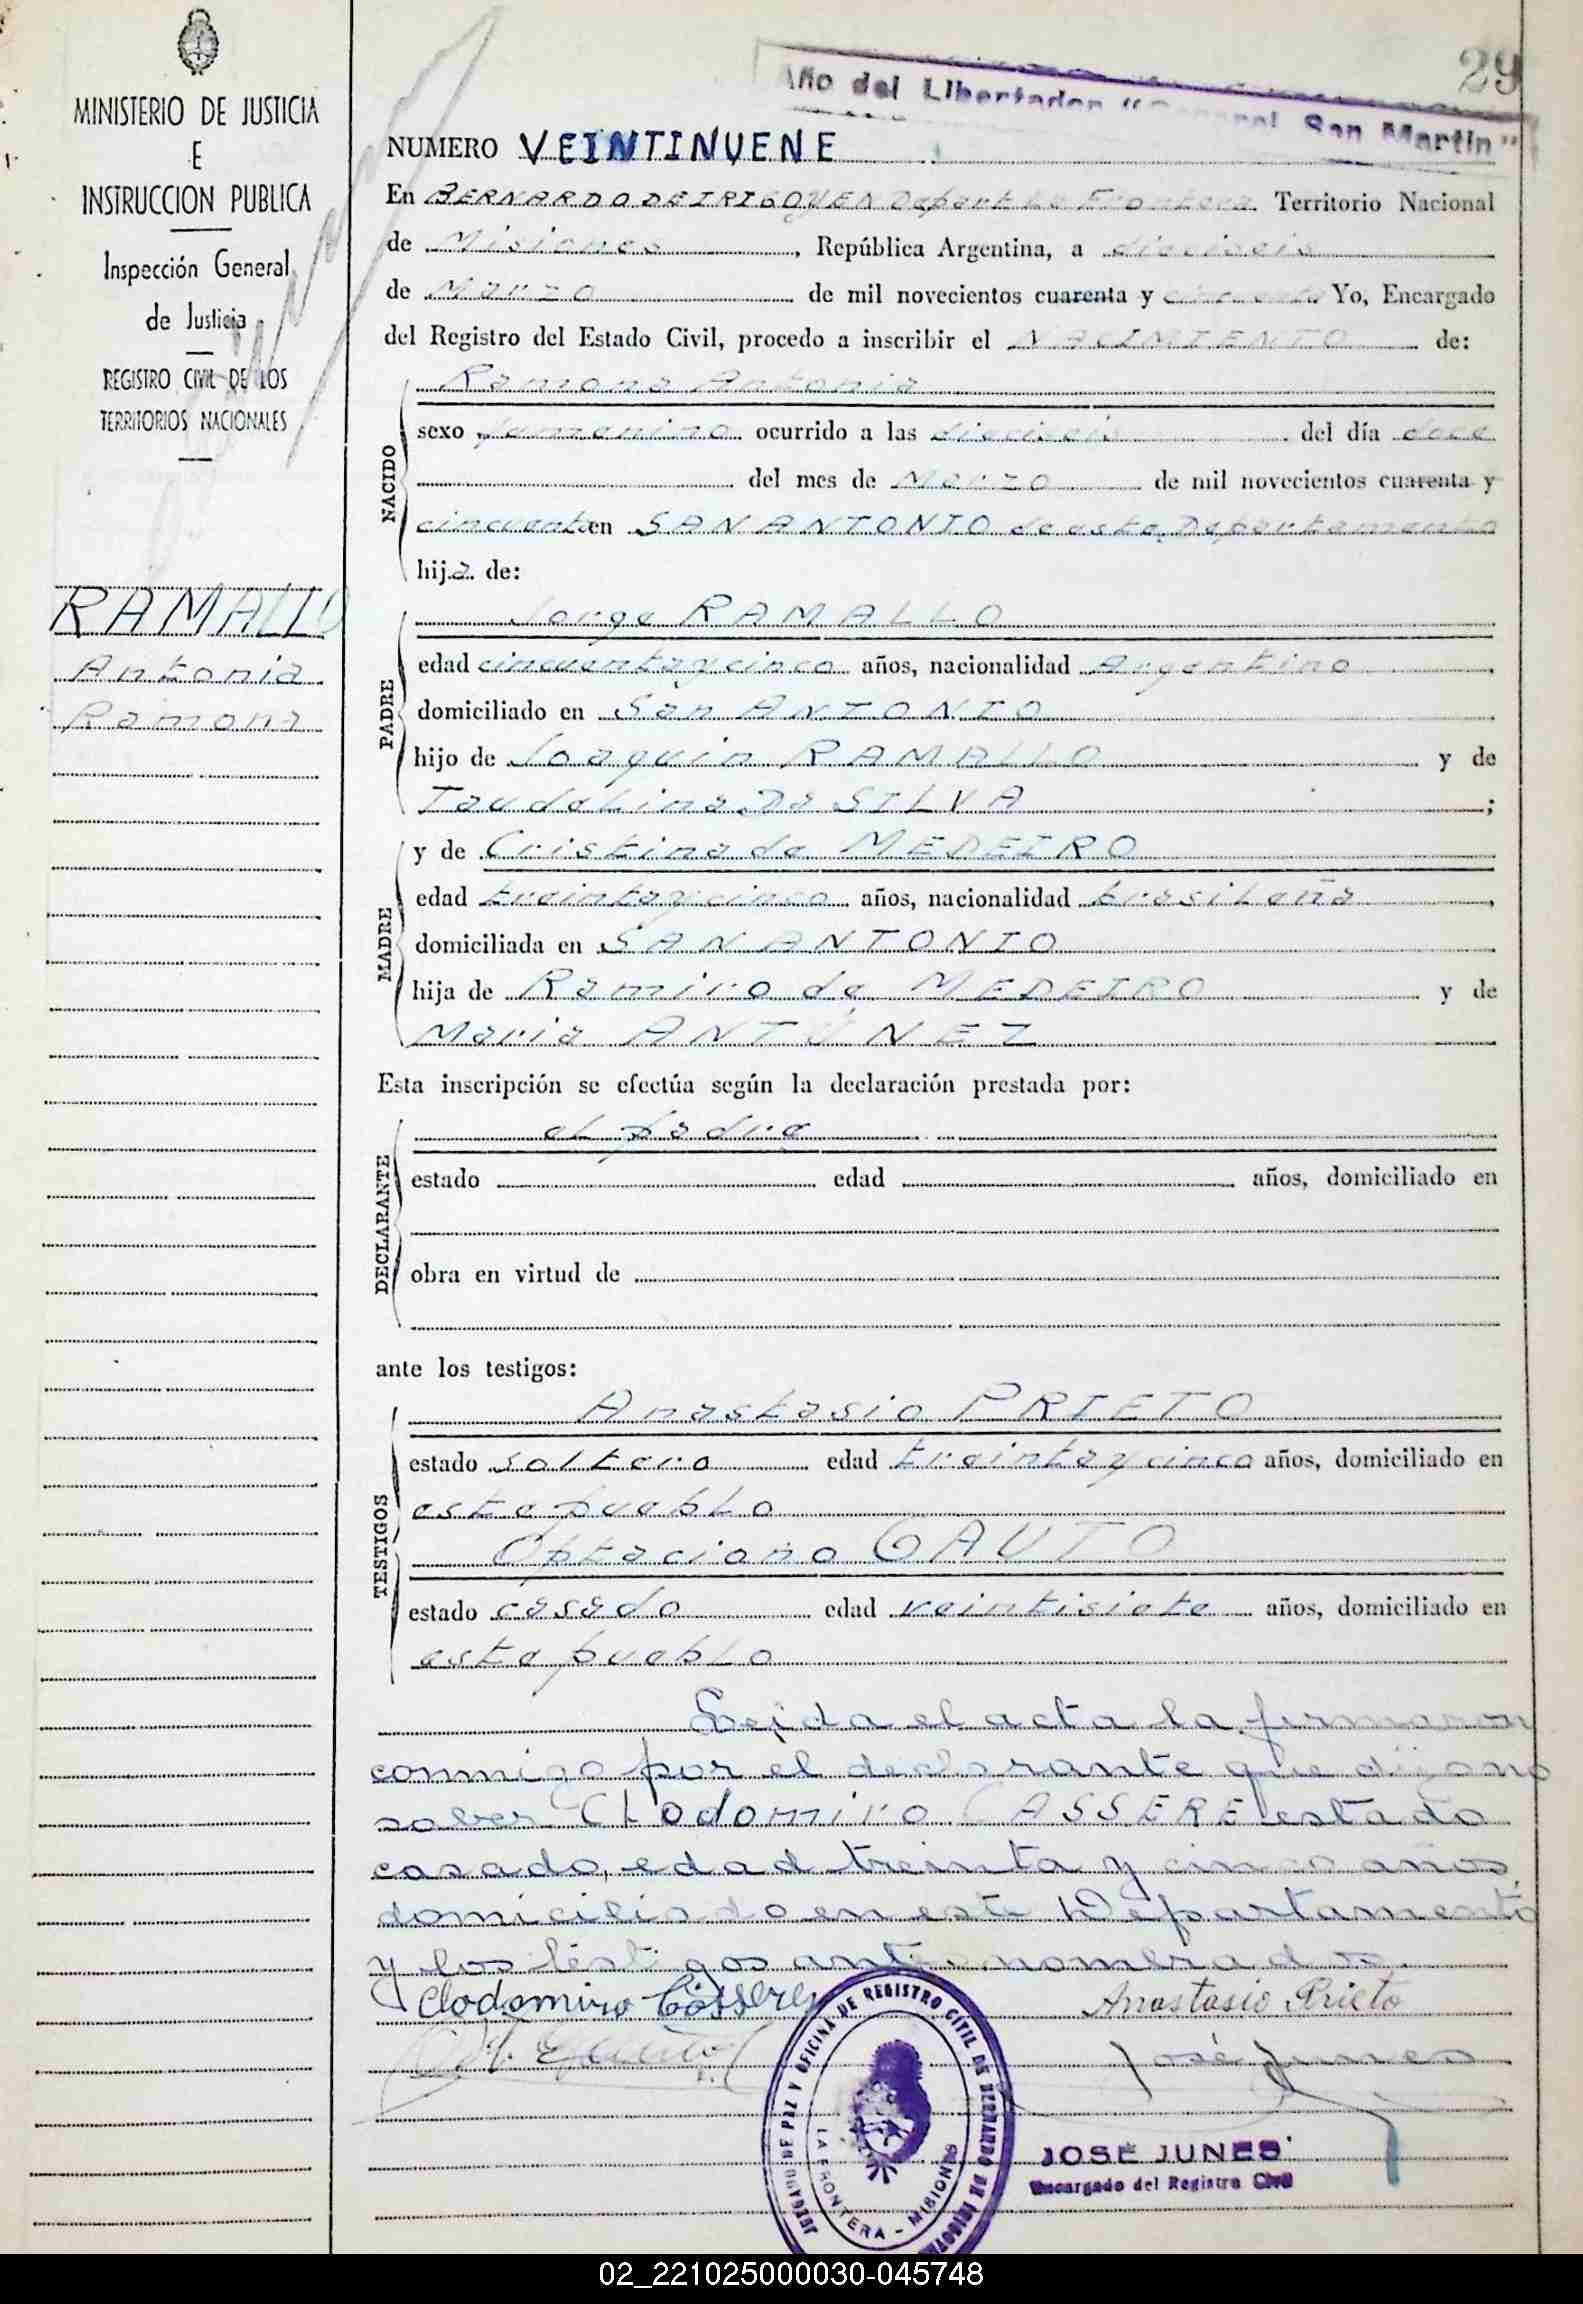 29
Año del Libertador "General San Martin"
MINISTERIO DE JUSTICIA
E
INSTRUCCION PUBLICA
Inspección General
de Justicia
REGISTRO CIVIL DE LOS
TERRITORIOS NACIONALES
RAMALLO
Antonia
Ramona
NUMERO VEINTINUENE
En BERNARDO DE IRIGOYEN Depart La Frontera Territorio Nacional
de Misiones, República Argentina, a dieciseis
de Marzo de mil novecientos cuarenta y cincuenta Yo, Encargado
del Registro del Estado Civil, procedo a inscribir el NACIMIENTO de:
NACIDO
Ramona Antonia
sexo femenino ocurrido a las dieciseis del día doce
del mes de Marzo de mil novecientos cuarenta y
cincuenta en SAN ANTONIO de este Departamento
hija de:
PADRE
Jorge RAMALLO
edad cincuenta y cinco años, nacionalidad Argentino
domiciliado en San ANTONIO
hijo de Joaquin RAMALLO y de
Taudelina Da SILVA;
MADRE
y de Cristina de MEDEIRO
edad treinta y cinco años, nacionalidad brasileña
domiciliada en SAN ANTONIO
hija de Ramiro de MEDEIRO y de
Maria ANTÚNEZ
Esta inscripción se efectúa según la declaración prestada por:
DECLARANTE
el padre
estado edad años, domiciliado en
obra en virtud de
ante los testigos:
TESTIGOS
Anastasio PRIETO
estado soltero edad treinta y cinco años, domiciliado en
este pueblo
Optaciano GAUTO
estado casado edad veintisiete años, domiciliado en
este pueblo
Leida el acta la firmaron
conmigo por el declarante que dijo no
saber Clodomiro CASSERE estado
casado, edad treinta y cinco años,
domiciliado en este Departamento
y los testigos antenombrados.
Clodomiro Casseres Anastasio Prieto
José Junes
JUZGADO DE PAZ Y OFICINA DE REGISTRO CIVIL DE BERNARDO DE IRIGOYEN
LA FRONTERA - MISIONES
JOSÉ JUNES
Encargado del Registro Civil
02_221025000030-045748